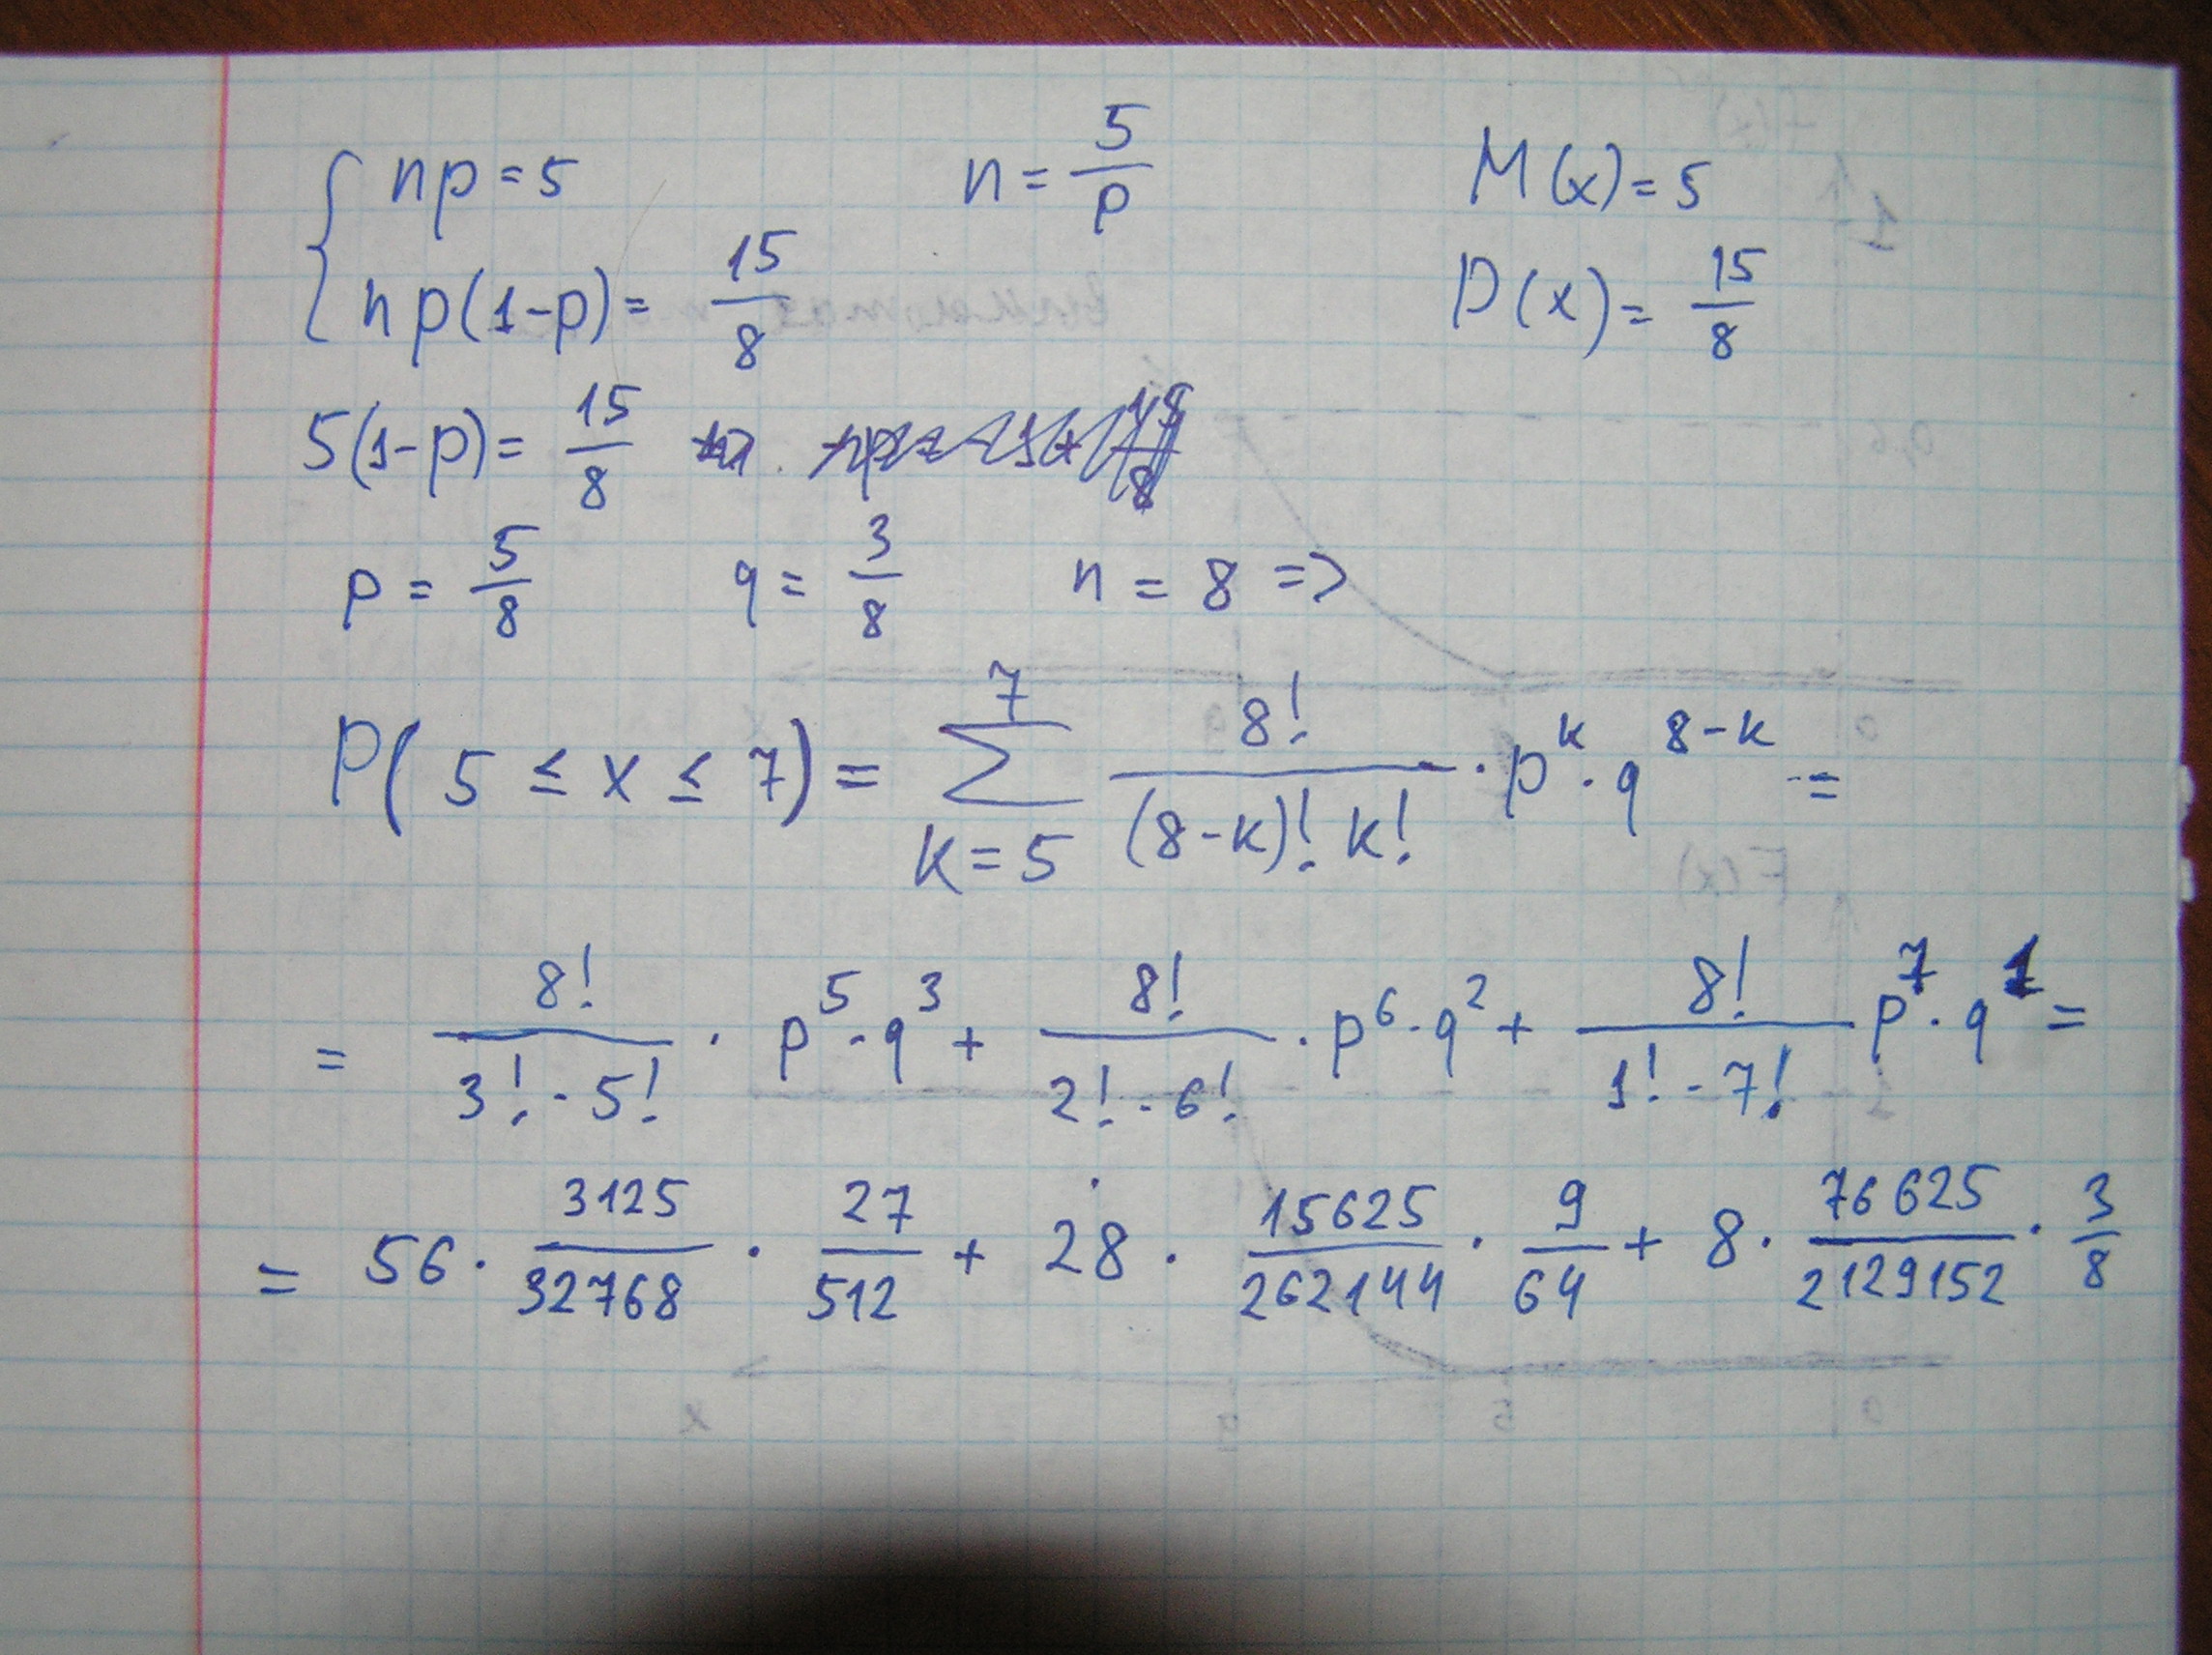 np=5 n=5/p M(x)=5
np(1-p)=15/8 D(x)=15/8
5(1-p)=15/8
p=5/8 q=3/8 n=8 =>
P(5≤x≤7)=∑_{k=5}^{7} 8!/((8-k)!·k!)·p^k·q^{8-k}=
=8!/(3!·5!)·p^5·q^3+8!/(2!·6!)·p^6·q^2+8!/(1!·7!) p^7·q^1=
=56·3125/32768·27/512+28·15625/262144·9/64+8·76625/2129152·3/8